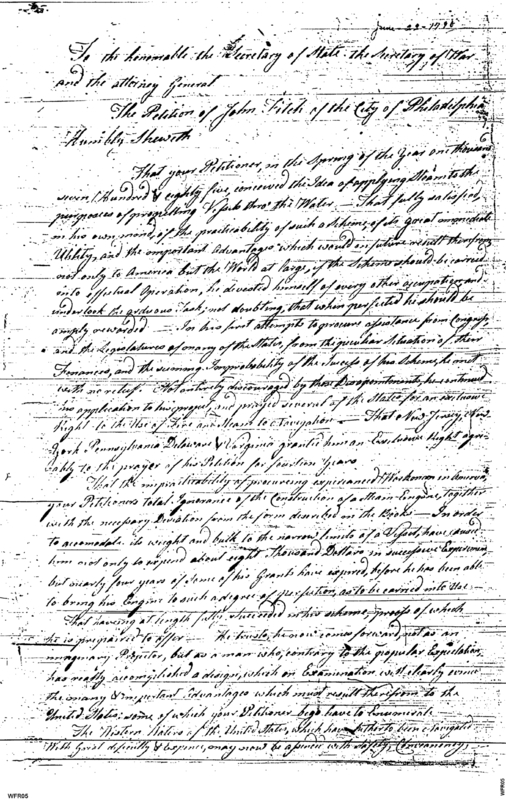 June 22 1790
To the honorable the Secretary of State the Secretary of War
and the attorney General
The Petition of John Fitch of the City of Philadelphia
Humbly Sheweth
That your Petitioner, in the Spring of the Year one thousand
seven Hundred & eighty five, conceived the Idea of applying Steam to the
purposes of propelling Vessels thro' the Water — That fully satisfied
in his own mind, of the practicability of such a Scheme, of its great immediate
Utility, and the important Advantages which would in future result therefrom
not only to America but the World at large, if the Scheme should be carried
into effectual Operation, he devoted himself of every other occupation, and
undertook the arduous Task; not doubting, that when perfected he should be
amply rewarded — In his first attempts to procure assistance from Congress,
and the Legislatures of many of the States, from the peculiar Situation of their
Finances, and the seeming Improbability of the Success of his Scheme, he met
with no relief. Not entirely discouraged by those Disappointments, he continued
his application to his project, and prayed several of the States for an exclusive
Right to the Use of Fire and Steam to Navigation — That New Jersey, New
York Pennsylvania Delaware & Virginia granted him an Exclusive Right agre-
ably to the prayer of his Petition for fourteen Years
That the impracticability of procuring experienced Workmen in America,
your Petitioners total Ignorance of the Construction of a Steam Engine, together
with the necessary Deviation from the form described in the Books — In order
to accomodate its weight and bulk to the narrow limits of a Vessel, have caused
him not only to expend about eight thousand Dollars in successive Experiments
but nearly four years of some of his Grants have expired, before he has been able
to bring his Engine to such a degree of perfection, as to be carried into Use
That having at length fully succeeded in his scheme, proofs of which
he is prepaired to offer — He trusts, he now comes forward, not as an
imaginary Projector, but as a man who, contrary to the popular Expectation,
has really accomplished a design, which on Examination will clearly evince
the many & important Advantages which must result therefrom to the
United States; some of which your Petitioner begs leave to Enumerate
The Western Waters of the United States, which have hitherto been navigated
With Great difficulty & expence, may now be with safety, Conveniency,
WFR05
WFR05